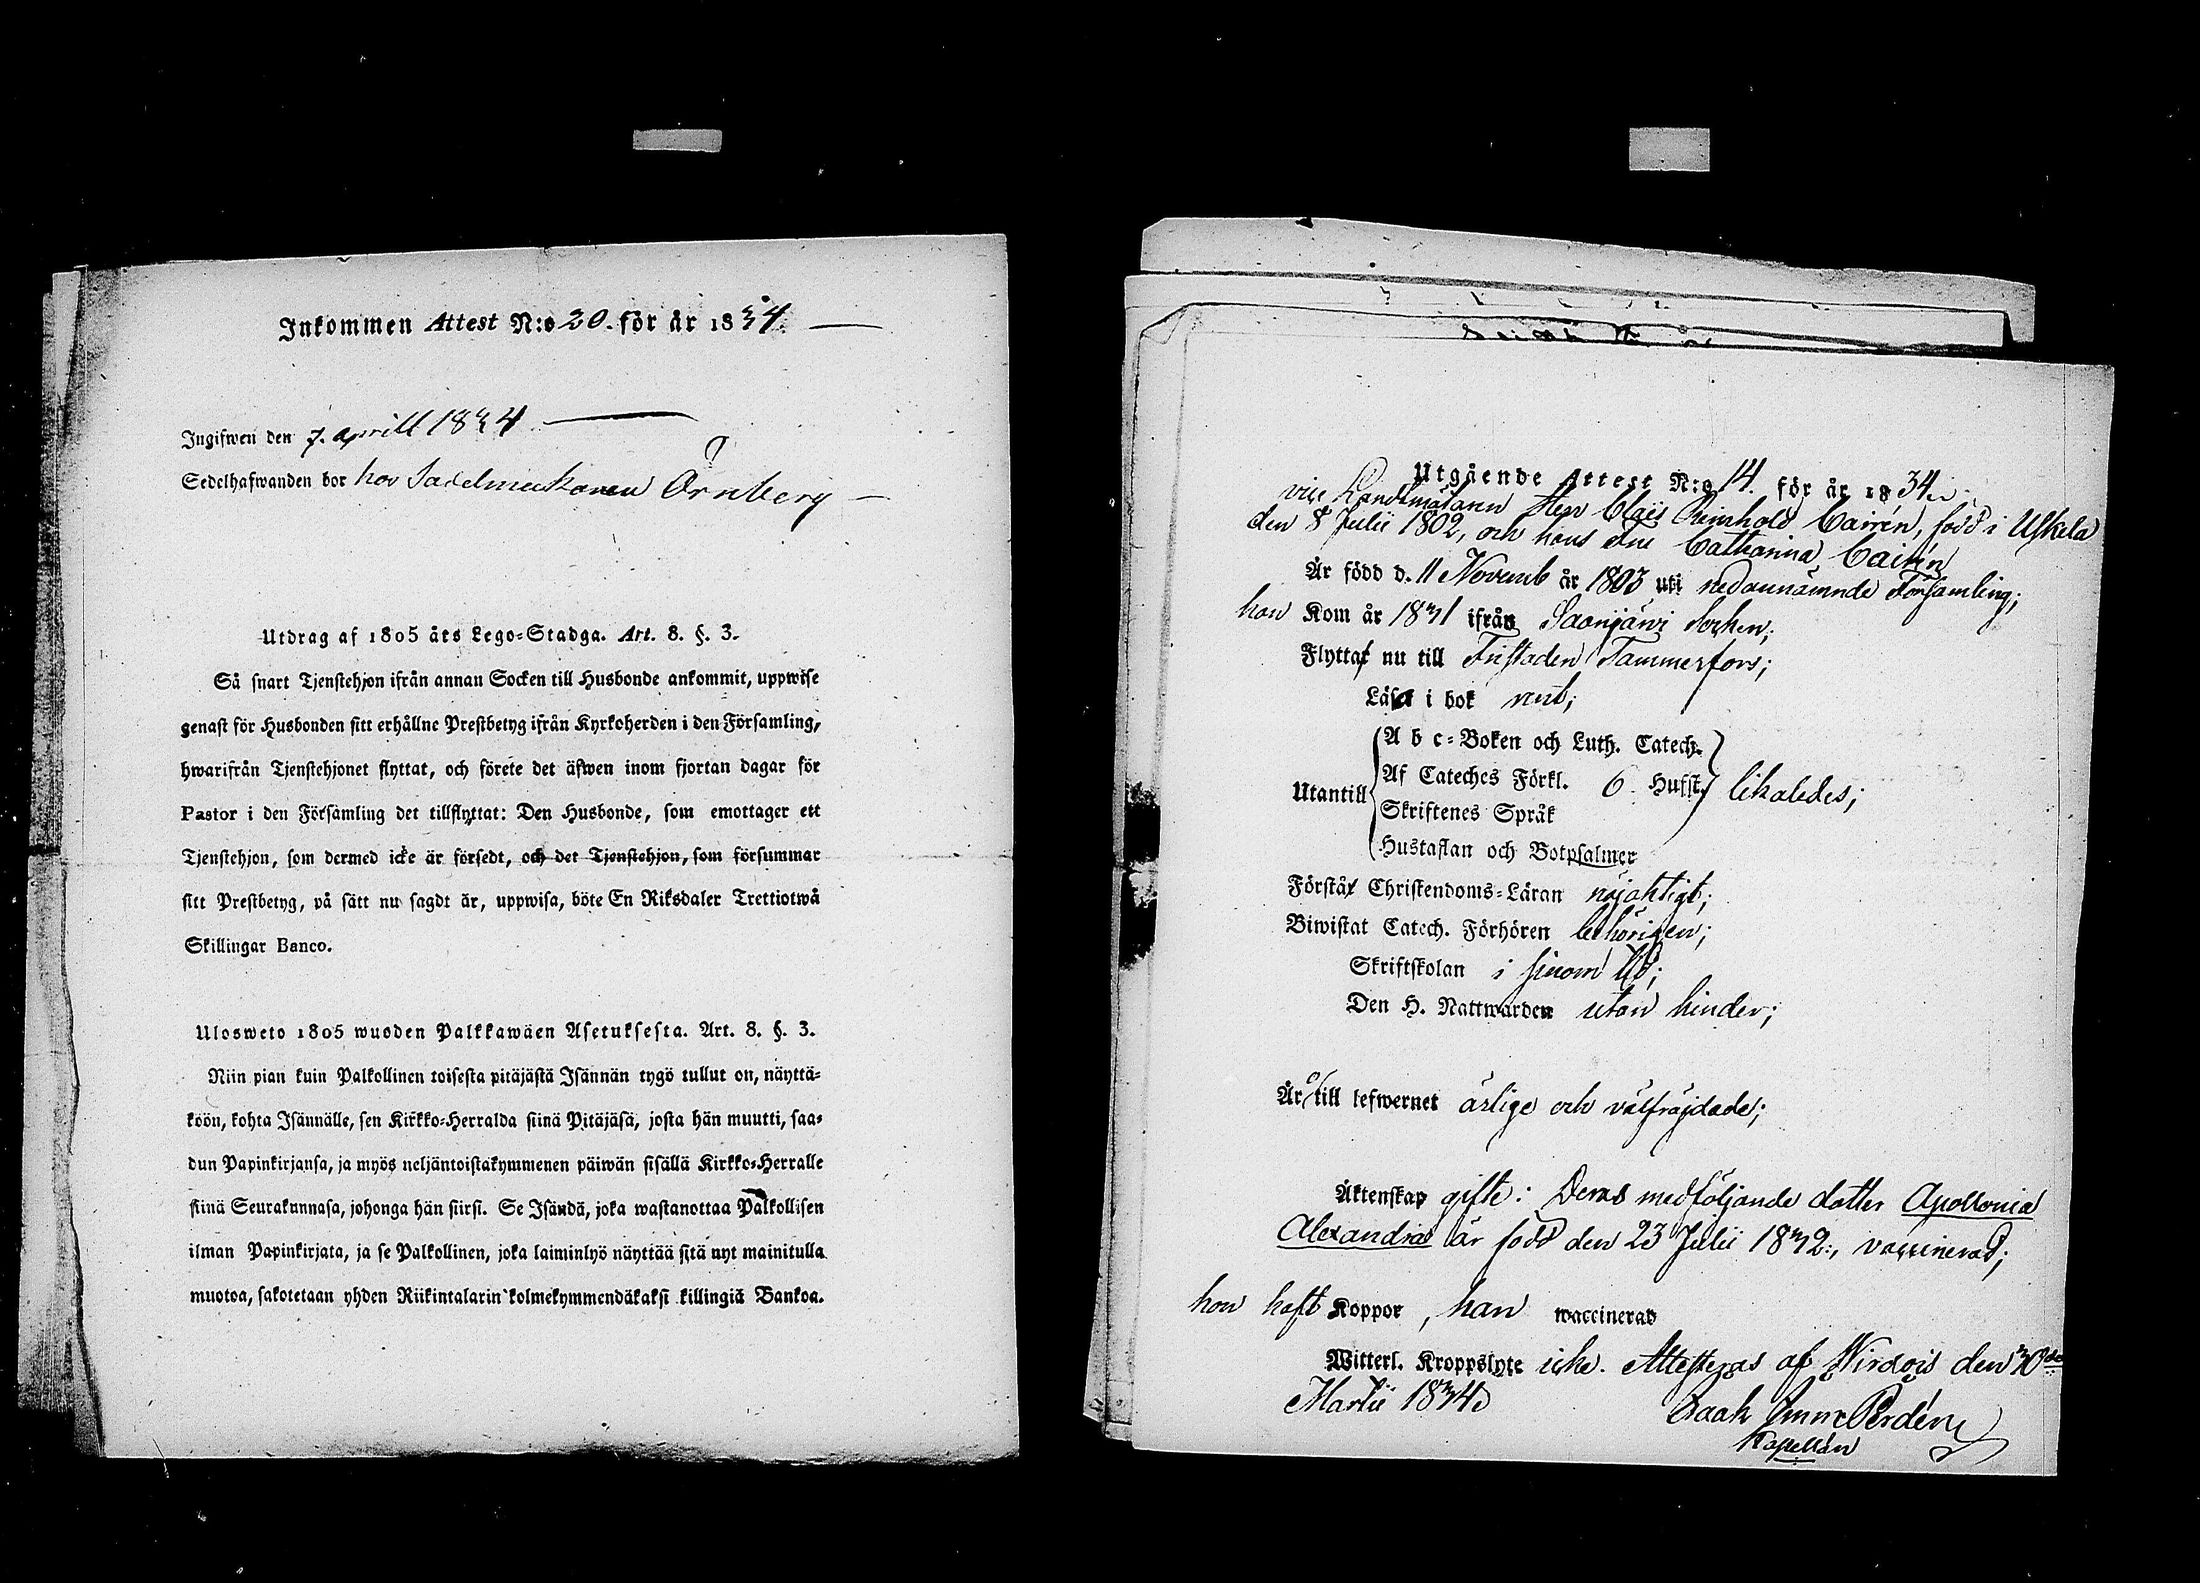 Inkommen Attest N:o 20. för år 1834.
Ingifwen den 7. aprill 1834
Sedelhafwanden bor hos Sadelmakaren Örnberg
Utdrag af 1805 åts Lego-Stadga. Art. 8. §. 3.
Så snart Tjenstehjon ifrån annan Socken till Husbonde ankommit, uppwise
genast för Husbonden sitt erhållne Prestbetyg ifrån Kyrkoherden i den Församling,
hwarifrån Tjenstehjonet flyttat, och förete det äfwen inom fjortan dagar för
Pastor i den Församling det tillflyttat: Den Husbonde, som emottager ett
Tjenstehjon, som dermed icke är försedt, och det Tjenstehjon, som försummar
sitt Prestbetyg, på sätt nu sagdt är, uppwisa, böte En Riksdaler Trettiotwå
Skillingar Banco.
Ulosweto 1805 wuoden Palkkawäen Asetuksesta. Art. 8. §. 3.
Niin pian kuin Palkollinen toisesta pitäjästä Isännän tygö tullut on, näyttä-
köön, kohta Isännälle, sen Kirkko-Herralda siinä Pitäjäsä, josta hän muutti, saa-
dun Papinkirjansa, ja myös neljäntoistakymmenen päiwän sisällä Kirkko-Herralle
siinä Seurakunnasa, johonga hän siirsi. Se Isändä, joka wastanottaa Palkollisen
ilman Papinkirjata, ja se Palkollinen, joka laiminlyö näyttää sitä nyt mainitulla
muotoa, sakotetaan yhden Riikintalarin kolmekymmendäkaksi killingiä Bankoa.
Utgående Attest N:o 14. för år 1834.
vice Landtmätaren Herr Claës Reinhold Cairén, född i Uskela
den 8 Julii 1802, och hans Fru Catharina Cairén
År född d. 11 Novemb år 1803 uti nedannämnde Församling;
han Kom år 1831 ifrån Saarijärvi Socken;
Flytta nu till Fristaden Tammerfors;
Läsa i bok rent;
A b c-Boken och Luth. Catech.
Af Cateches Förkl. 6 Hufst.
Utantill likaledes;
Skriftenes Språk
Hustaflan och Botpsalmer
Förstå Christendoms-Läran nöjaktigt;
Biwistat Catech. Förhören behörigen;
Skriftskolan i sinom tid;
Den H. Nattwarden utan hinder;
Är till lefwernet ärlige och välfräjdade;
Äktenskap gifte: Deras medföljande dotter Apollonia
Alexandra är född den 23 Julii 1832:, vaccinerad;
hon haft Koppor, han waccinerad
Witterl. Kroppslyte icke. Attesteras af Wirdois den 30de
Martii 1834
Isaak Perdén
Kapellan